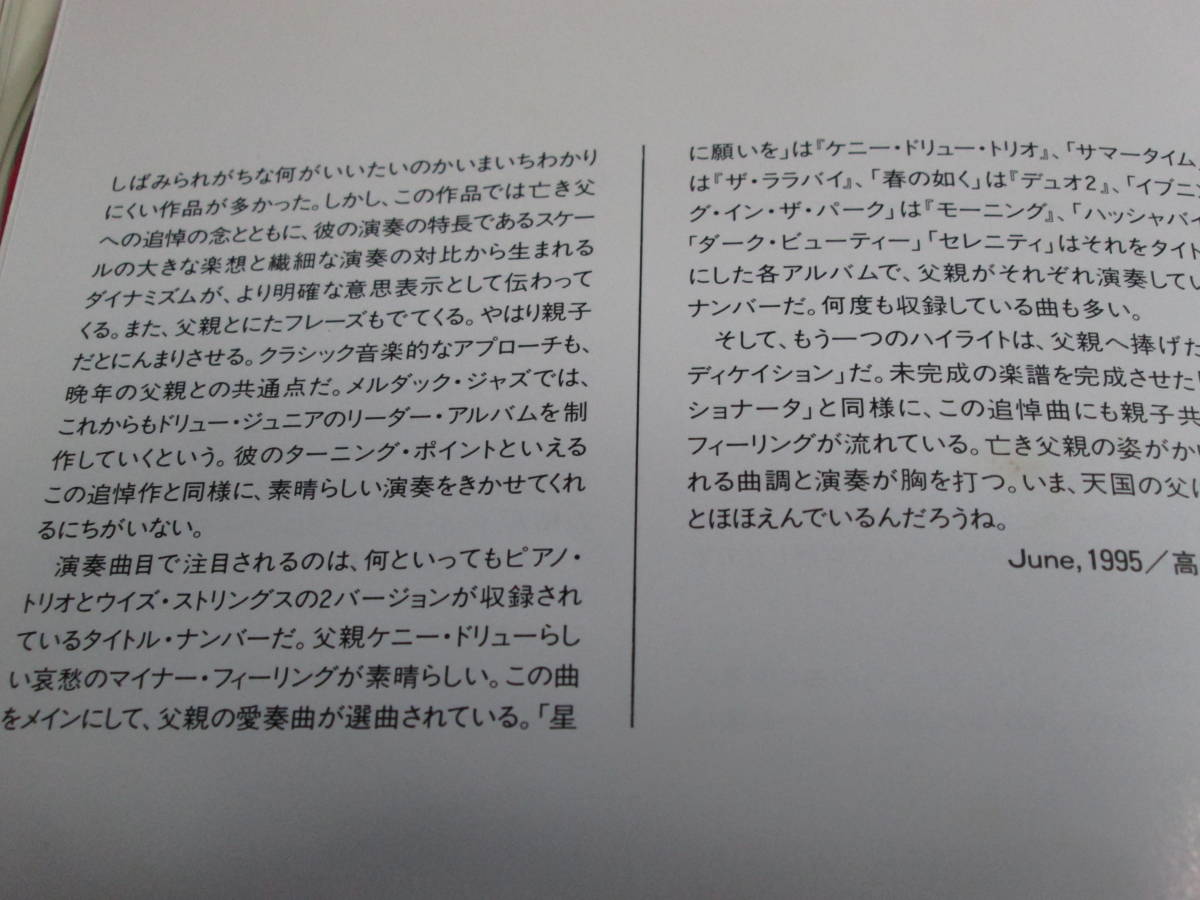 しばみられがちな何がいいたいのかいまいちわかり
にくい作品が多かった。しかし、この作品では亡き父
への追悼の念とともに、彼の演奏の特長であるスケー
ルの大きな楽想と繊細な演奏の対比から生まれる
ダイナミズムが、より明確な意思表示として伝わって
くる。また、父親とにたフレーズもでてくる。やはり親子
だとにんまりさせる。クラシック音楽的なアプローチも、
晩年の父親との共通点だ。メルダック・ジャズでは、
これからもドリュー・ジュニアのリーダー・アルバムを制
作していくという。彼のターニング・ポイントといえる
この追悼作と同様に、素晴らしい演奏をきかせてくれ
るにちがいない。
演奏曲目で注目されるのは、何といってもピアノ・
トリオとウイズ・ストリングスの2バージョンが収録され
ているタイトル・ナンバーだ。父親ケニー・ドリューらし
い哀愁のマイナー・フィーリングが素晴らしい。この曲
をメインにして、父親の愛奏曲が選曲されている。「星
に願いを」は『ケニー・ドリュー・トリオ』、「サマータイム」
は『ザ・ララバイ』、「春の如く」は『デュオ2』、「イブニン
グ・イン・ザ・パーク」は『モーニング』、「ハッシャバイ
「ダーク・ビューティー」「セレニティ」はそれをタイト
にした各アルバムで、父親がそれぞれ演奏してい
ナンバーだ。何度も収録している曲も多い。
そして、もう一つのハイライトは、父親へ捧げた
ディケイション」だ。未完成の楽譜を完成させた
ショナータ」と同様に、この追悼曲にも親子共
フィーリングが流れている。亡き父親の姿がか
れる曲調と演奏が胸を打つ。いま、天国の父は
とほほえんでいるんだろうね。
June, 1995／高